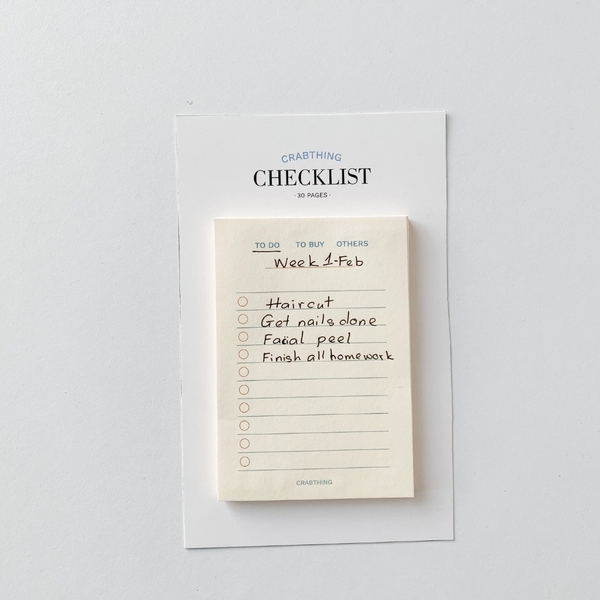 CRABTHING
CHECKLIST
· 30 PAGES ·
TO DO TO BUY OTHERS
Week 1-Feb
Haircut
Get nails done
Facial peel
Finish all homework
CRABTHING